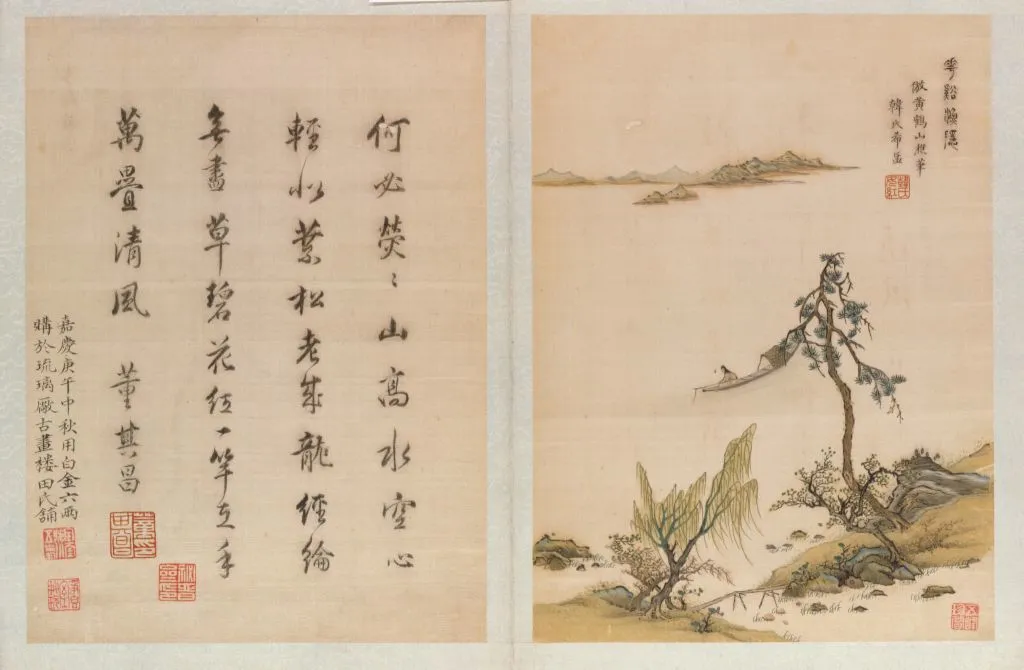 花谿漁隱
倣黃鶴山樵筆
韓氏希孟
韓氏女紅
何必熒〻山高水空心
輕似葉松老成龍經綸
無盡草碧花紅一竿在手
萬疊清風 董其昌
嘉慶庚午中秋用白金六兩
購於琉璃廠古畫樓田氏舖